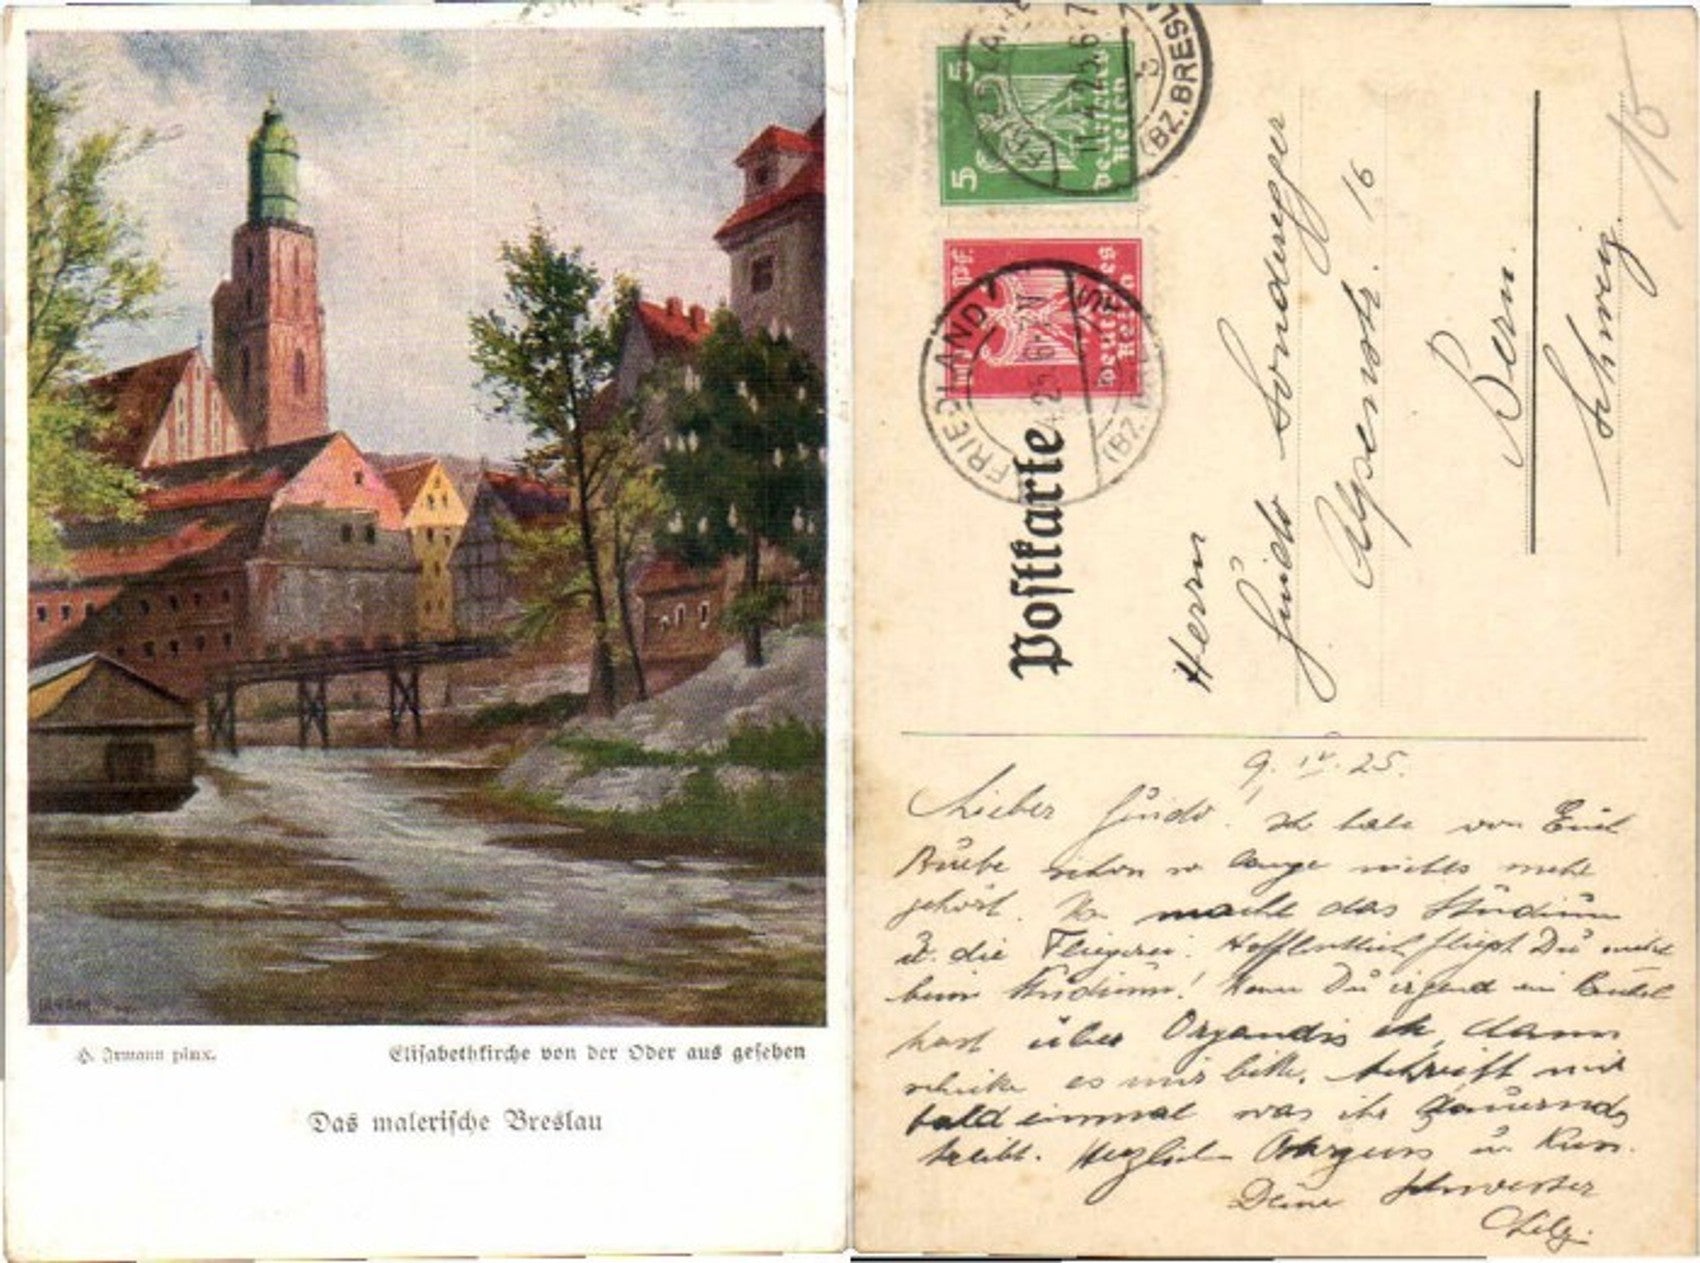 H. Irmann pinx.
Elisabethkirche von der Oder aus gesehen
Das malerische Breslau
5 5
Deutsches
Reich
Pf.
Deutsches
Reich
11.4.25. 6-7
(BZ. BRESL
FRIEDLAND
(BZ.
Postkarte
15
Herrn
Guido Sonderegger
Alpenstr. 16
Bern.
Schweiz.
9. IV. 25.
Lieber Guido! Ich habe von Euch
schon so lange nichts mehr
gehört. macht das Studium
u. die Fliegerei. Hoffentlich fliegst Du nicht
beim Studium! Wenn Du irgend ein
hast über, dann
schicke es mir bitte. Schreibt mir
bald einmal was ihr dauernd
treibt. Herzlichen u.
Deine Schwester